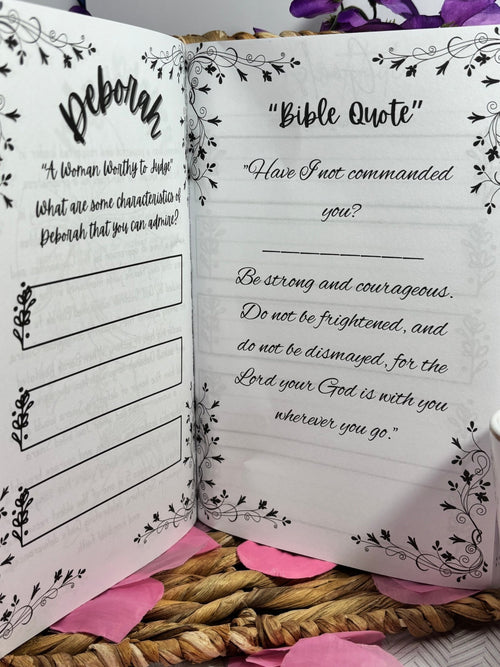 Deborah
"A Woman Worthy to Judge"
What are some characteristics of
Deborah that you can admire?
"Bible Quote"
"Have I not commanded
you?
Be strong and courageous.
Do not be frightened, and
do not be dismayed, for the
Lord your God is with you
wherever you go."